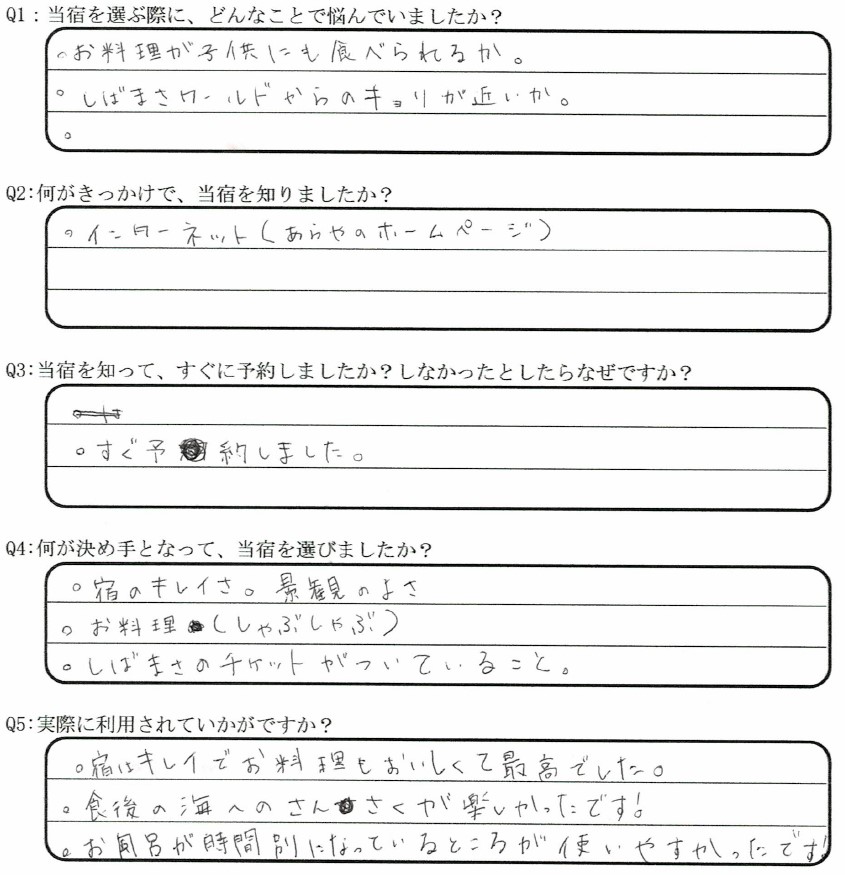 Q1:当宿を選ぶ際に、どんなことで悩んでいましたか？
。お料理が子供にも食べられるか。
。しばまさワールドからのキョリが近いか。
。
Q2:何がきっかけで、当宿を知りましたか？
。インターネット(あらやのホームページ)
Q3:当宿を知って、すぐに予約しましたか？しなかったとしたらなぜですか？
。すぐ予約しました。
Q4:何が決め手となって、当宿を選びましたか？
。宿のキレイさ。景観のよさ
。お料理(しゃぶしゃぶ)
。しばまさのチケットがついていること。
Q5:実際に利用されていかがですか？
。宿はキレイでお料理もおいしくて最高でした。
。食後の海へのさんさくが楽しかったです!
。お風呂が時間別になっているところが使いやすかったです!